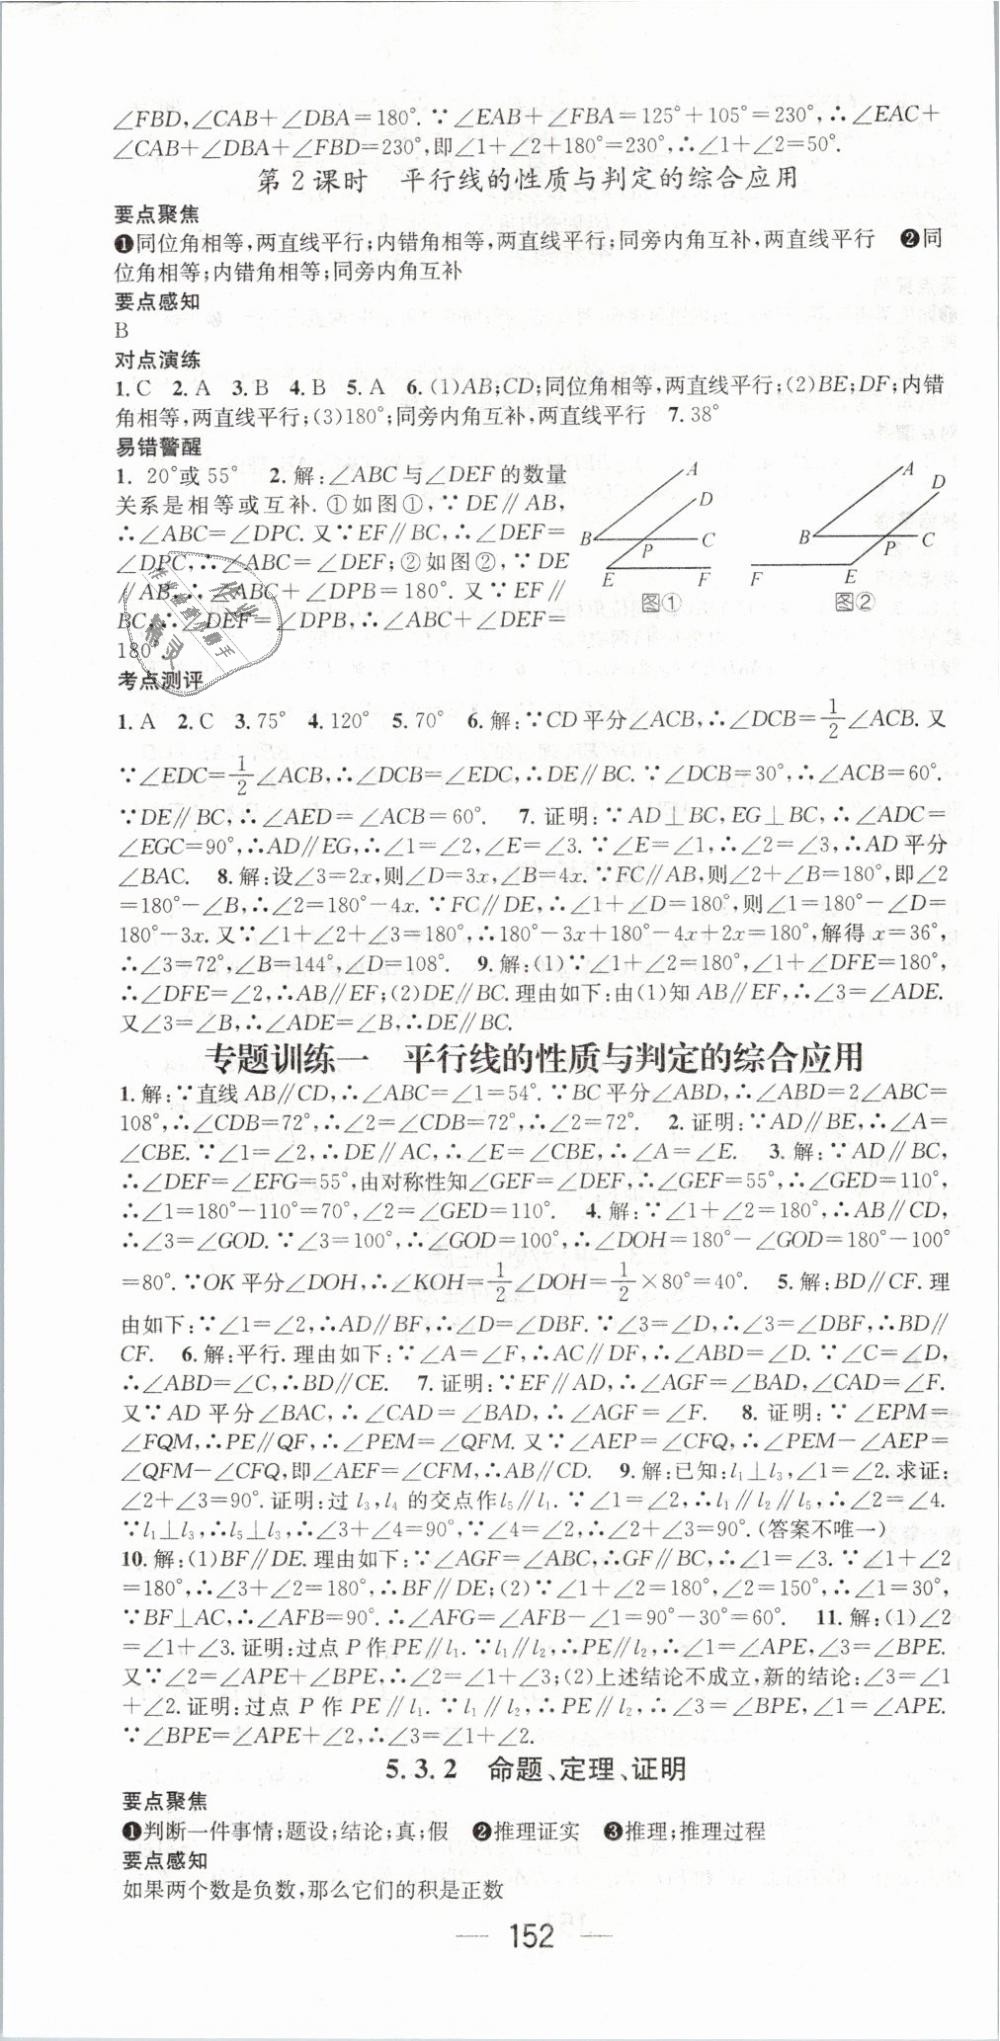 ∠FBD,∠CAB+∠DBA=180°.∵∠EAB+∠FBA=125°+105°=230°,∴∠EAC+
∠CAB+∠DBA+∠FBD=230°,即∠1+∠2+180°=230°,∴∠1+∠2=50°.
第2课时　平行线的性质与判定的综合应用
要点聚焦
❶同位角相等,两直线平行;内错角相等,两直线平行;同旁内角互补,两直线平行　❷同
位角相等;内错角相等;同旁内角互补
要点感知
B
对点演练
1.C　2.A　3.B　4.B　5.A　6.(1)AB;CD;同位角相等,两直线平行;(2)BE;DF;内错
角相等,两直线平行;(3)180°;同旁内角互补,两直线平行　7.38°
易错警醒
1. 20°或55°　2.解:∠ABC与∠DEF的数量
关系是相等或互补.①如图①,∵DE∥AB,
∴∠ABC=∠DPC.又∵EF∥BC,∴∠DEF=
∠DPC,∴∠ABC=∠DEF;②如图②,∵DE
∥AB,∴∠ABC+∠DPB=180°.又∵EF∥
BC,∴∠DEF=∠DPB,∴∠ABC+∠DEF=
180°.
A
D
B
P
C
E
F
图①
A
D
B
P
C
F
E
图②
作业检查小助手
作业
精灵
考点测评
1.A　2.C　3.75°　4.120°　5.70°　6.解:∵CD平分∠ACB,∴∠DCB=1/2∠ACB.又
∵∠EDC=1/2∠ACB,∴∠DCB=∠EDC,∴DE∥BC.∵∠DCB=30°,∴∠ACB=60°.
∵DE∥BC,∴∠AED=∠ACB=60°.　7.证明:∵AD⊥BC,EG⊥BC,∴∠ADC=
∠EGC=90°,∴AD∥EG,∴∠1=∠2,∠E=∠3.∵∠E=∠1,∴∠2=∠3,∴AD平分
∠BAC.　8.解:设∠3=2x,则∠D=3x,∠B=4x.∵FC∥AB,则∠2+∠B=180°,即∠2
=180°-∠B,∴∠2=180°-4x.∵FC∥DE,∴∠1+∠D=180°,则∠1=180°-∠D=
180°-3x.又∵∠1+∠2+∠3=180°,∴180°-3x+180°-4x+2x=180°,解得x=36°,
∴∠3=72°,∠B=144°,∠D=108°.　9.解:(1)∵∠1+∠2=180°,∠1+∠DFE=180°,
∴∠DFE=∠2,∴AB∥EF;(2)DE∥BC.理由如下:由(1)知AB∥EF,∴∠3=∠ADE.
又∠3=∠B,∴∠ADE=∠B,∴DE∥BC.
专题训练一　平行线的性质与判定的综合应用
1.解:∵直线AB∥CD,∴∠ABC=∠1=54°.∵BC平分∠ABD,∴∠ABD=2∠ABC=
108°,∴∠CDB=72°,∴∠2=∠CDB=72°,∴∠2=72°.　2.证明:∵AD∥BE,∴∠A=
∠CBE.∵∠1=∠2,∴DE∥AC,∴∠E=∠CBE,∴∠A=∠E.　3.解:∵AD∥BC,
∴∠DEF=∠EFG=55°,由对称性知∠GEF=∠DEF,∴∠GEF=55°,∴∠GED=110°,
∴∠1=180°-110°=70°,∠2=∠GED=110°.　4.解:∵∠1+∠2=180°,∴AB∥CD,
∴∠3=∠GOD.∵∠3=100°,∴∠GOD=100°,∴∠DOH=180°-∠GOD=180°-100°
=80°.∵OK平分∠DOH,∴∠KOH=1/2∠DOH=1/2×80°=40°.　5.解:BD∥CF.理
由如下:∵∠1=∠2,∴AD∥BF,∴∠D=∠DBF.∵∠3=∠D,∴∠3=∠DBF,∴BD∥
CF.　6.解:平行.理由如下:∵∠A=∠F,∴AC∥DF,∴∠ABD=∠D.∵∠C=∠D,
∴∠ABD=∠C,∴BD∥CE.　7.证明:∵EF∥AD,∴∠AGF=∠BAD,∠CAD=∠F.
又∵AD平分∠BAC,∴∠CAD=∠BAD,∴∠AGF=∠F.　8.证明:∵∠EPM=
∠FQM,∴PE∥QF,∴∠PEM=∠QFM.又∵∠AEP=∠CFQ,∴∠PEM-∠AEP=
∠QFM-∠CFQ,即∠AEF=∠CFM,∴AB∥CD.　9.解:已知:l₁⊥l₃,∠1=∠2.求证:
∠2+∠3=90°.证明:过l₃,l₄的交点作l₅∥l₁.∵∠1=∠2,∴l₁∥l₂∥l₅,∴∠2=∠4.
∵l₁⊥l₃,∴l₅⊥l₃,∴∠3+∠4=90°,∵∠4=∠2,∴∠2+∠3=90°.(答案不唯一)
10.解:(1)BF∥DE.理由如下:∵∠AGF=∠ABC,∴GF∥BC,∴∠1=∠3.∵∠1+∠2
=180°,∴∠3+∠2=180°,∴BF∥DE;(2)∵∠1+∠2=180°,∠2=150°,∴∠1=30°,
∵BF⊥AC,∴∠AFB=90°.∴∠AFG=∠AFB-∠1=90°-30°=60°.　11.解:(1)∠2
=∠1+∠3.证明:过点P作PE∥l₁.∵l₁∥l₂,∴PE∥l₂,∴∠1=∠APE,∠3=∠BPE.
又∵∠2=∠APE+∠BPE,∴∠2=∠1+∠3;(2)上述结论不成立,新的结论:∠3=∠1
+∠2.证明:过点P作PE∥l₁.∵l₁∥l₂,∴PE∥l₂,∴∠3=∠BPE,∠1=∠APE.
∵∠BPE=∠APE+∠2,∴∠3=∠1+∠2.
5.3.2　命题、定理、证明
要点聚焦
❶判断一件事情;题设;结论;真;假　❷推理证实　❸推理;推理过程
要点感知
如果两个数是负数,那么它们的积是正数
— 152 —